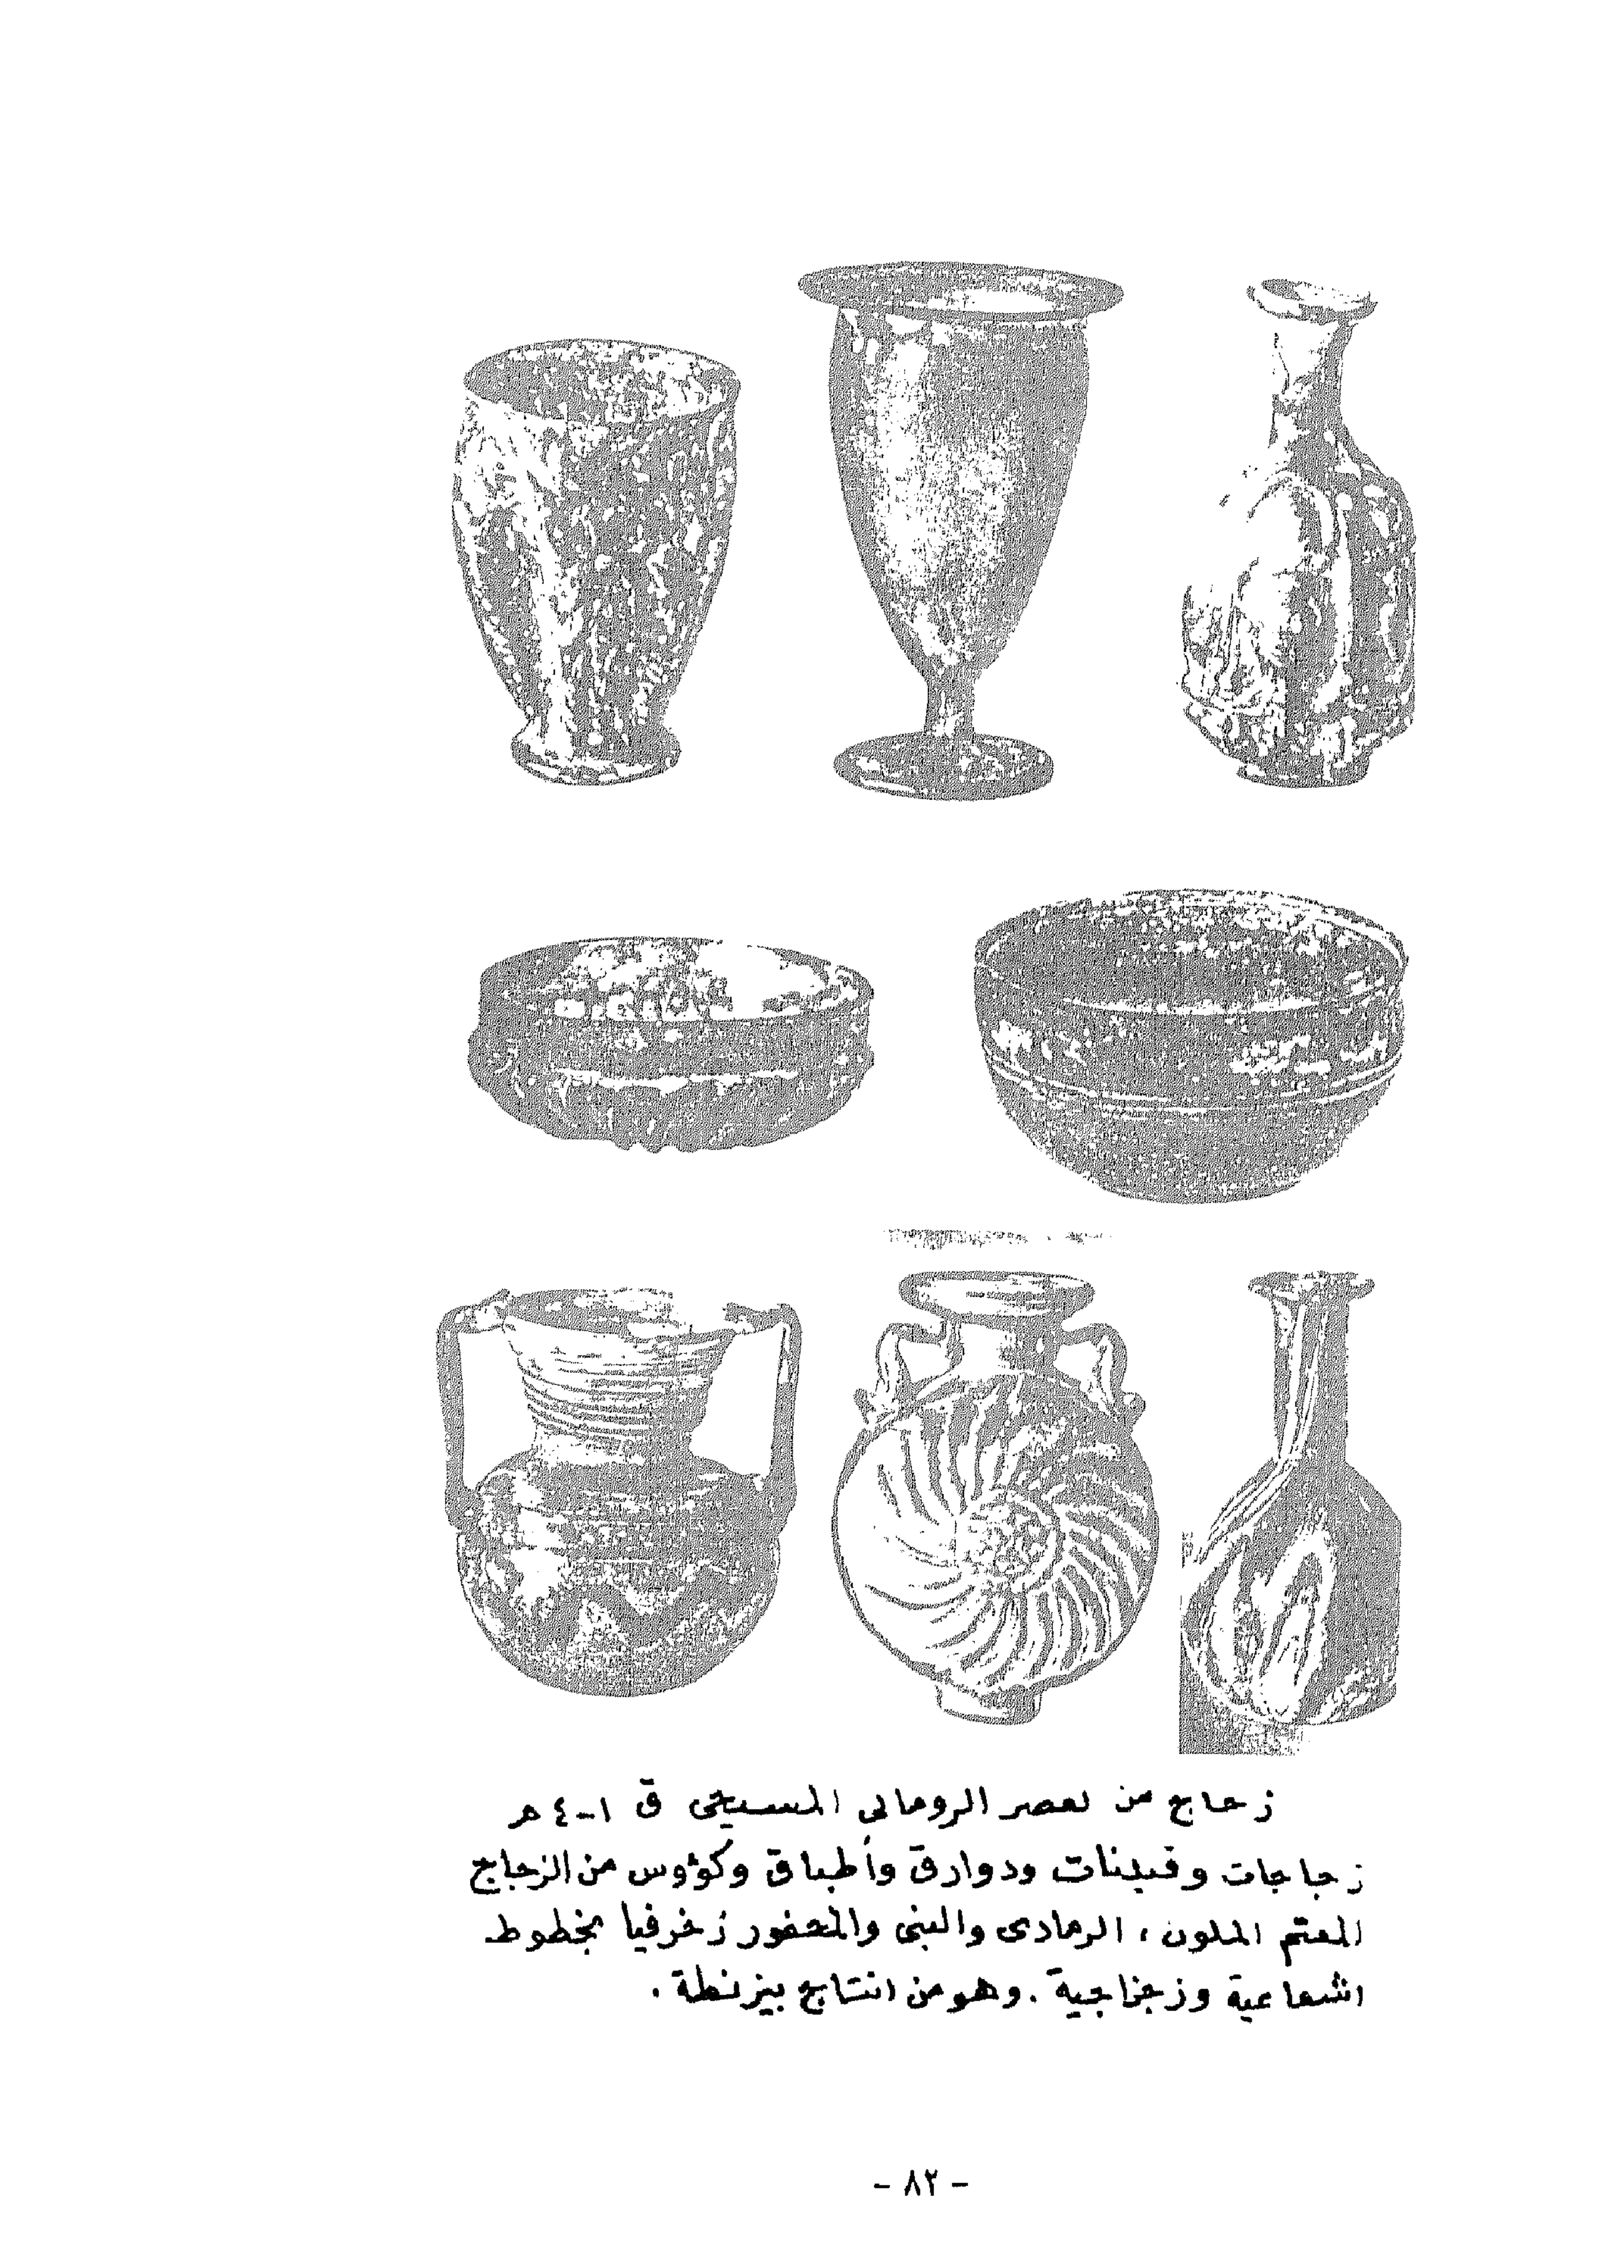 زجاج من لعصر الروماني المسيحي ق ١-٤ هـ
زجاجات وقنينات ودوارق وأطباق وكؤوس من الزجاج
المعتم الملون ، الرمادى والبنى والمحفور زخرفيا بخطوط
اشعاعية وزجزاجية . وهو من انتاج بيزنطة .
- ٨٢ -